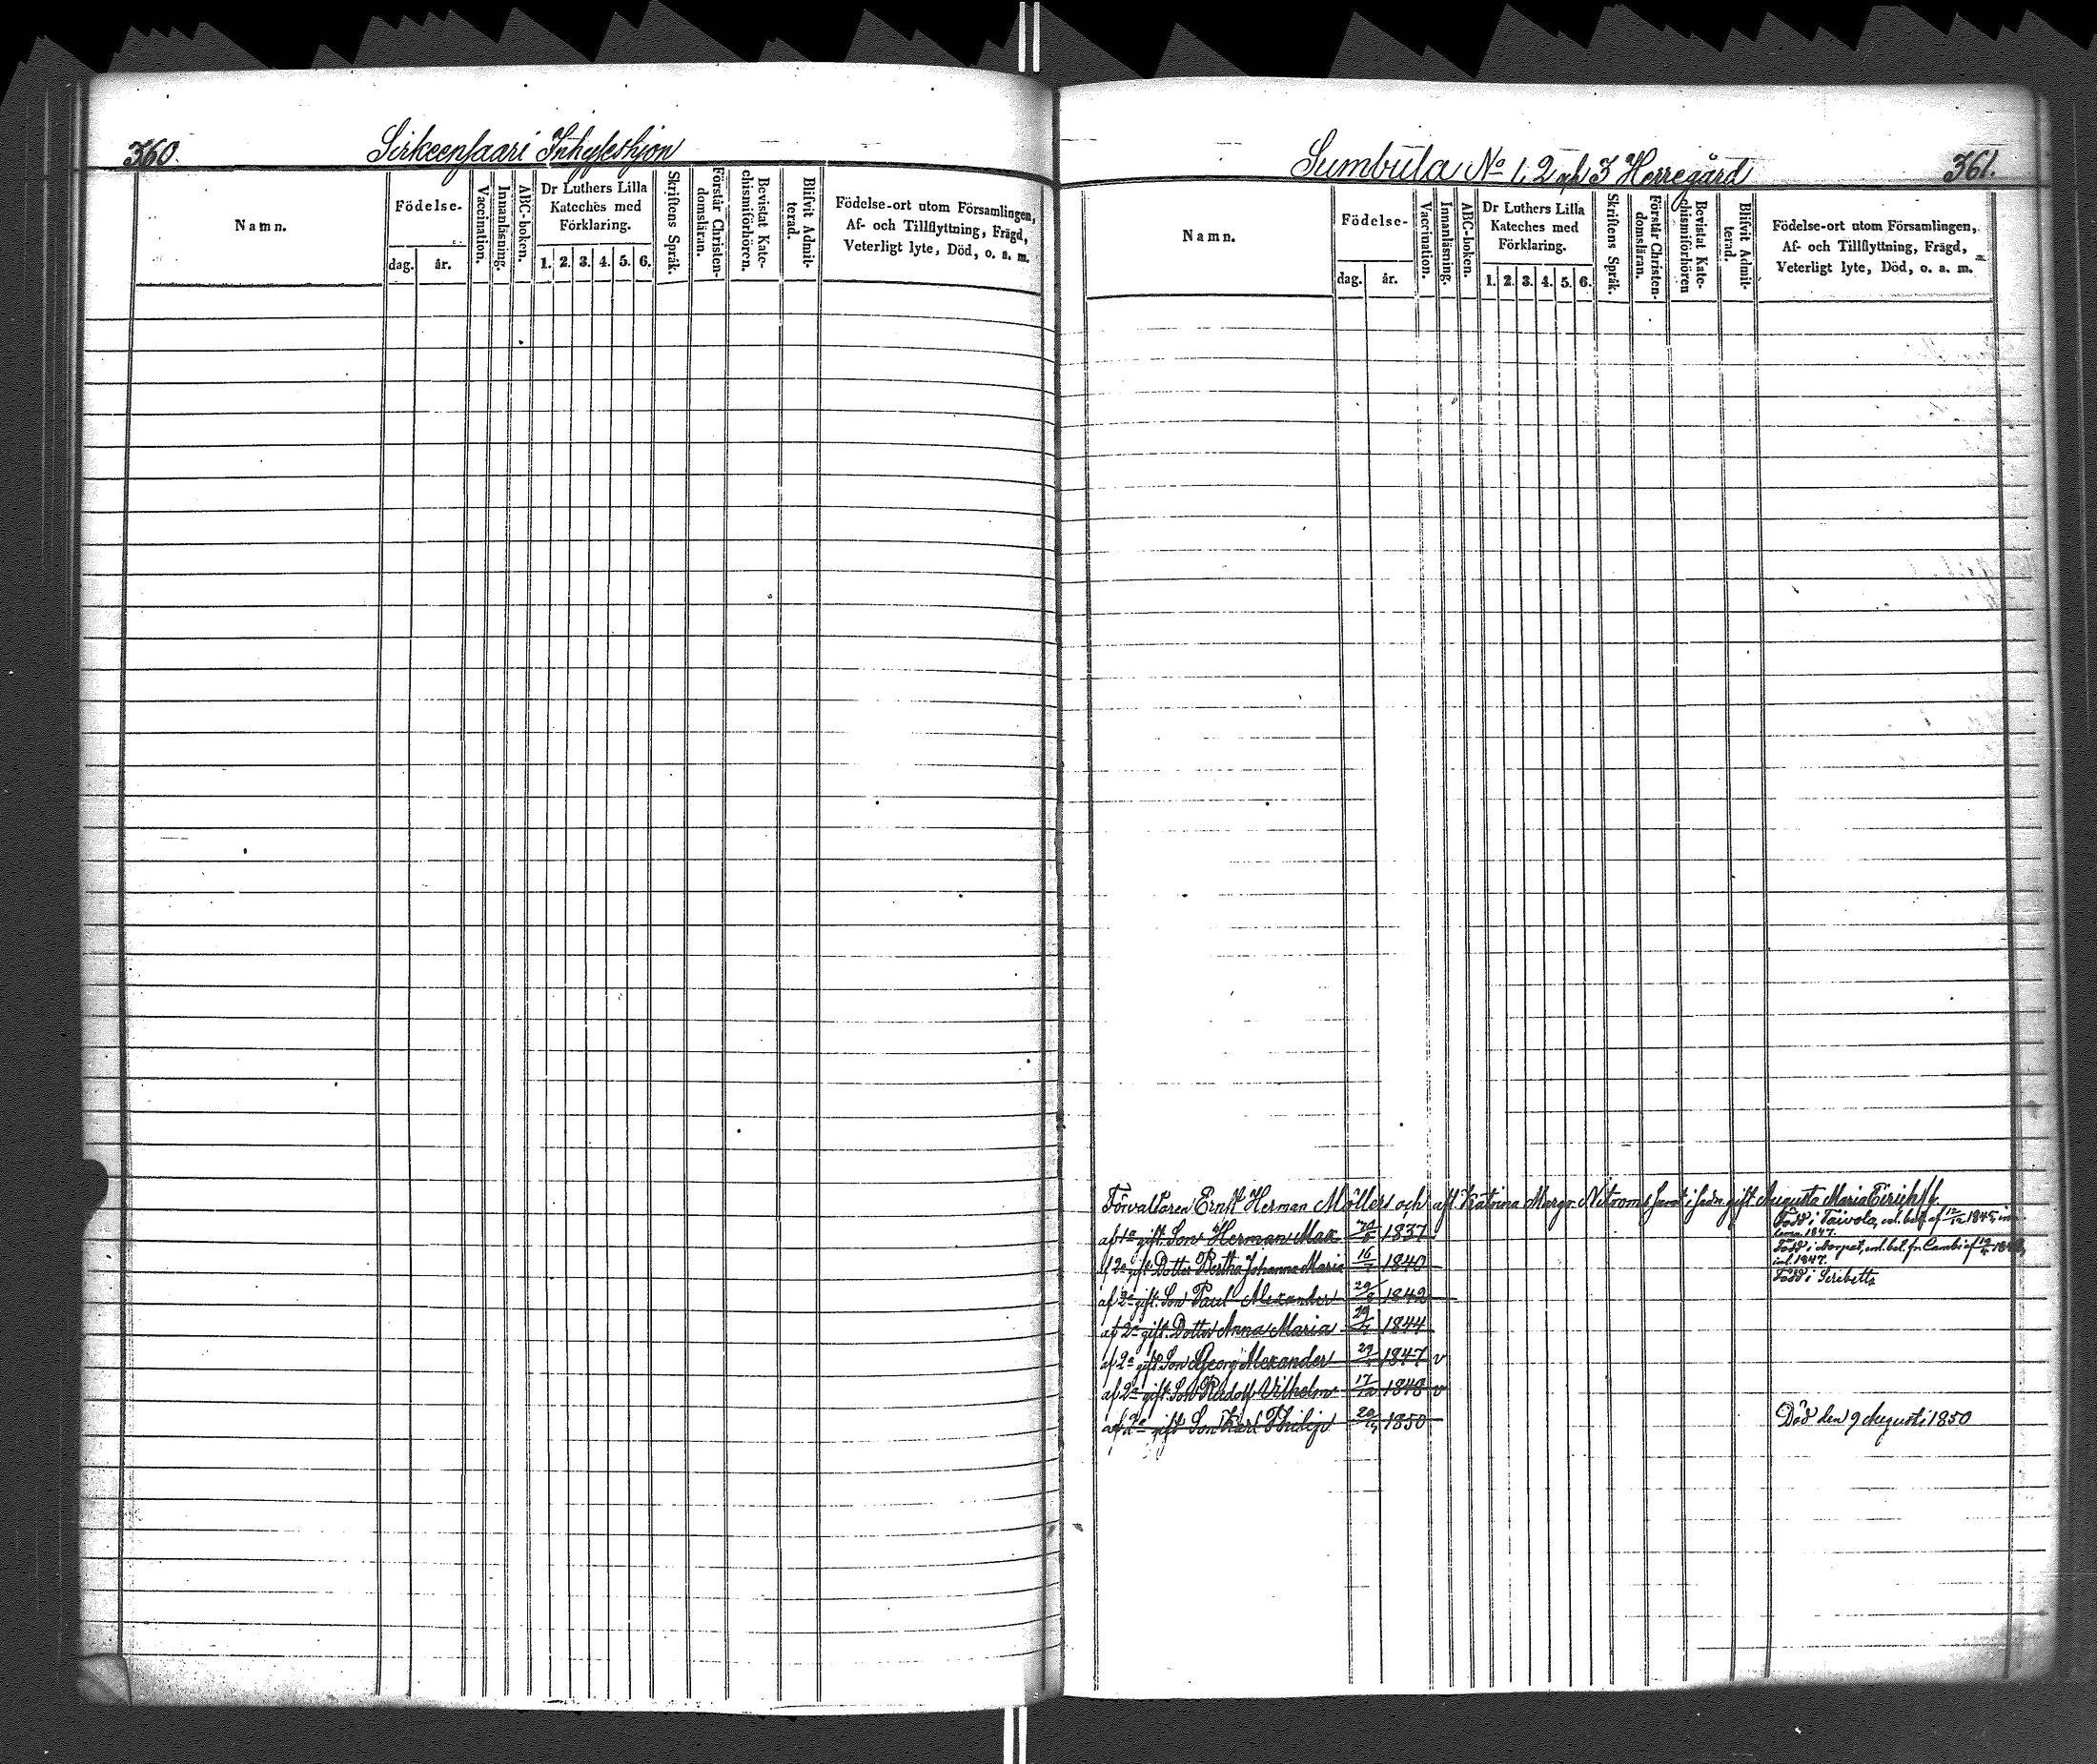 360.
Sirkeensaari Inhyseshjon
Namn.
Födelse-
dag.
år.
Vaccination.
Innanläsning.
ABC-boken.
Dr Luthers Lilla
Kateches med
Förklaring.
1. 2. 3. 4. 5. 6.
Skriftens Språk.
Förstår Christen-
domsläran.
Bevistat Kate-
chismiförhören.
Blifvit Admit-
terad.
Födelse-ort utom Församlingen,
Af- och Tillflyttning, Frägd,
Veterligt lyte, Död, o. s. m.
Sumbula No 1, 2 och 3 Herregård
361.
Namn.
Födelse-
dag.
år.
Vaccination.
Innanläsning.
ABC-boken.
Dr Luthers Lilla
Kateches med
Förklaring.
1. 2. 3. 4. 5. 6.
Skriftens Språk.
Förstår Christen-
domsläran.
Bevistat Kate-
chismiförhören
Blifvit Admit-
terad.
Födelse-ort utom Församlingen,
Af- och Tillflyttning, Frägd,
Veterligt lyte, Död, o. a. m.
Förvaltaren Ernst Herman Möllers och Katrina Margr. gift Augusta Maria
af 1a gift. Son Herman Max 1837
Född i Taivola, 1845,
1847.
af 2a gift Dotter Bertha Johanna Maria 16 1840
Född i Dorpat,
1847.
af 2a gift. Son Paul Alexander 29 1842
Född i
af 2a gift. Dotter Anna Maria 29 1844
af 2a gift Son Georg Alexander 29 1847 v
af 2a gift. Son Rudolf Vilhelm 17 1848 v
af 2a gift Son Karl Philip 1850
Död den 9 Augusti 1850